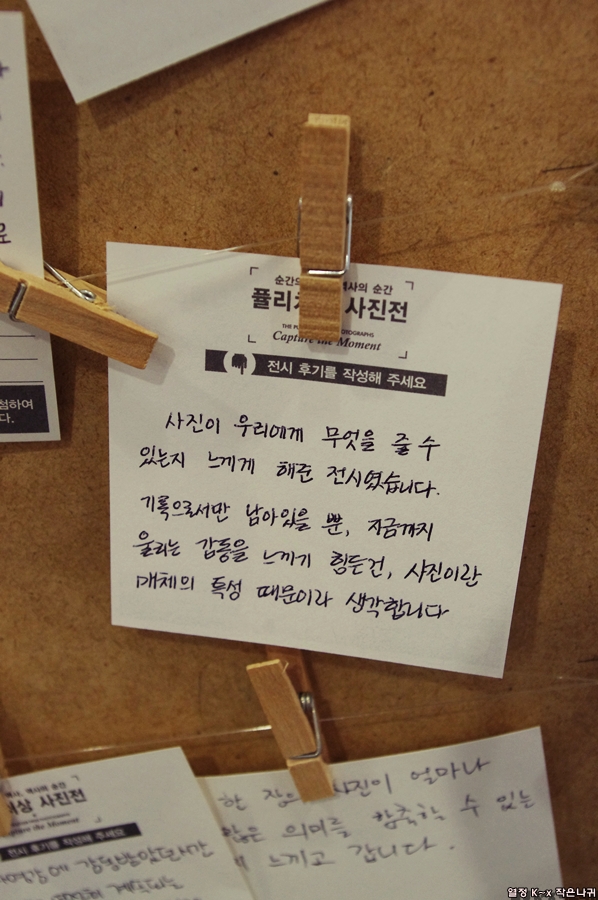 순간의 역사의 순간
퓰리 사진전
Capture the Moment
전시 후기를 작성해 주세요
사진이 우리에게 무엇을 줄 수
있는지 느끼게 해준 전시였습니다.
기록으로서만 남아있을 뿐, 지금까지
울리는 감동을 느끼기 힘든건, 사진이란
매체의 특성 때문이라 생각합니다
첨하여
다.
역사의 순간
처상 사진전
the Moment
전시 후기를 작성해 주세요
한 장의 사진이 얼마나
많은 의미를 함축할 수 있는
느끼고 갑니다.
열정 K-x 작은나귀